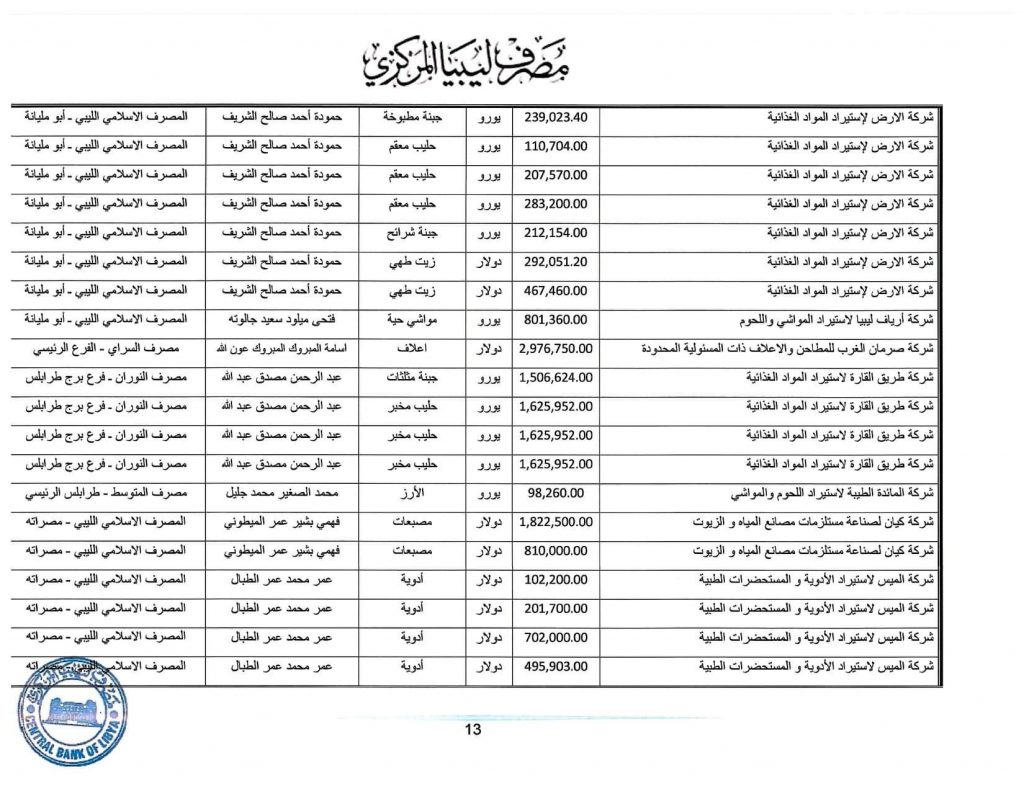 مصرف ليبيا المركزي
شركة الارض لإستيراد المواد الغذائية 239,023.40 يورو جبنة مطبوخة حمودة أحمد صالح الشريف المصرف الاسلامي الليبي - أبو مليانة
شركة الارض لإستيراد المواد الغذائية 110,704.00 يورو حليب معقم حمودة أحمد صالح الشريف المصرف الاسلامي الليبي - أبو مليانة
شركة الارض لإستيراد المواد الغذائية 207,570.00 يورو حليب معقم حمودة أحمد صالح الشريف المصرف الاسلامي الليبي - أبو مليانة
شركة الارض لإستيراد المواد الغذائية 283,200.00 يورو حليب معقم حمودة أحمد صالح الشريف المصرف الاسلامي الليبي - أبو مليانة
شركة الارض لإستيراد المواد الغذائية 212,154.00 يورو جبنة شرائح حمودة أحمد صالح الشريف المصرف الاسلامي الليبي - أبو مليانة
شركة الارض لإستيراد المواد الغذائية 292,051.20 دولار زيت طهي حمودة أحمد صالح الشريف المصرف الاسلامي الليبي - أبو مليانة
شركة الارض لإستيراد المواد الغذائية 467,460.00 دولار زيت طهي حمودة أحمد صالح الشريف المصرف الاسلامي الليبي - أبو مليانة
شركة أرياف ليبيا لاستيراد المواشي واللحوم 801,360.00 يورو مواشي حية فتحى ميلود سعيد جالوته المصرف الاسلامي الليبي - أبو مليانة
شركة صرمان الغرب للمطاحن والاعلاف ذات المسئولية المحدودة 2,976,750.00 دولار اعلاف اسامة المبروك المبروك عون الله مصرف السراي - الفرع الرئيسي
شركة طريق القارة لاستيراد المواد الغذائية 1,506,624.00 يورو جبنة مثلثات عبد الرحمن مصدق عبد الله مصرف النوران - فرع برج طرابلس
شركة طريق القارة لاستيراد المواد الغذائية 1,625,952.00 يورو حليب مخبر عبد الرحمن مصدق عبد الله مصرف النوران - فرع برج طرابلس
شركة طريق القارة لاستيراد المواد الغذائية 1,625,952.00 يورو حليب مخبر عبد الرحمن مصدق عبد الله مصرف النوران - فرع برج طرابلس
شركة طريق القارة لاستيراد المواد الغذائية 1,625,952.00 يورو حليب مخبر عبد الرحمن مصدق عبد الله مصرف النوران - فرع برج طرابلس
شركة المائدة الطيبة لاستيراد اللحوم والمواشي 98,260.00 يورو الأرز محمد الصغير محمد جليل مصرف المتوسط - طرابلس الرئيسي
شركة كيان لصناعة مستلزمات مصانع المياه و الزيوت 1,822,500.00 دولار مصبعات فهمي بشير عمر الميطوني المصرف الاسلامي الليبي - مصراته
شركة كيان لصناعة مستلزمات مصانع المياه و الزيوت 810,000.00 دولار مصبعات فهمي بشير عمر الميطوني المصرف الاسلامي الليبي - مصراته
شركة الميس لاستيراد الأدوية و المستحضرات الطبية 102,200.00 دولار أدوية عمر محمد عمر الطبال المصرف الاسلامي الليبي - مصراته
شركة الميس لاستيراد الأدوية و المستحضرات الطبية 201,700.00 دولار أدوية عمر محمد عمر الطبال المصرف الاسلامي الليبي - مصراته
شركة الميس لاستيراد الأدوية و المستحضرات الطبية 702,000.00 دولار أدوية عمر محمد عمر الطبال المصرف الاسلامي الليبي - مصراته
شركة الميس لاستيراد الأدوية و المستحضرات الطبية 495,903.00 دولار أدوية عمر محمد عمر الطبال المصرف الاسلامي الليبي - مصراته
مصرف ليبيا المركزي
CENTRAL BANK OF LIBYA
13